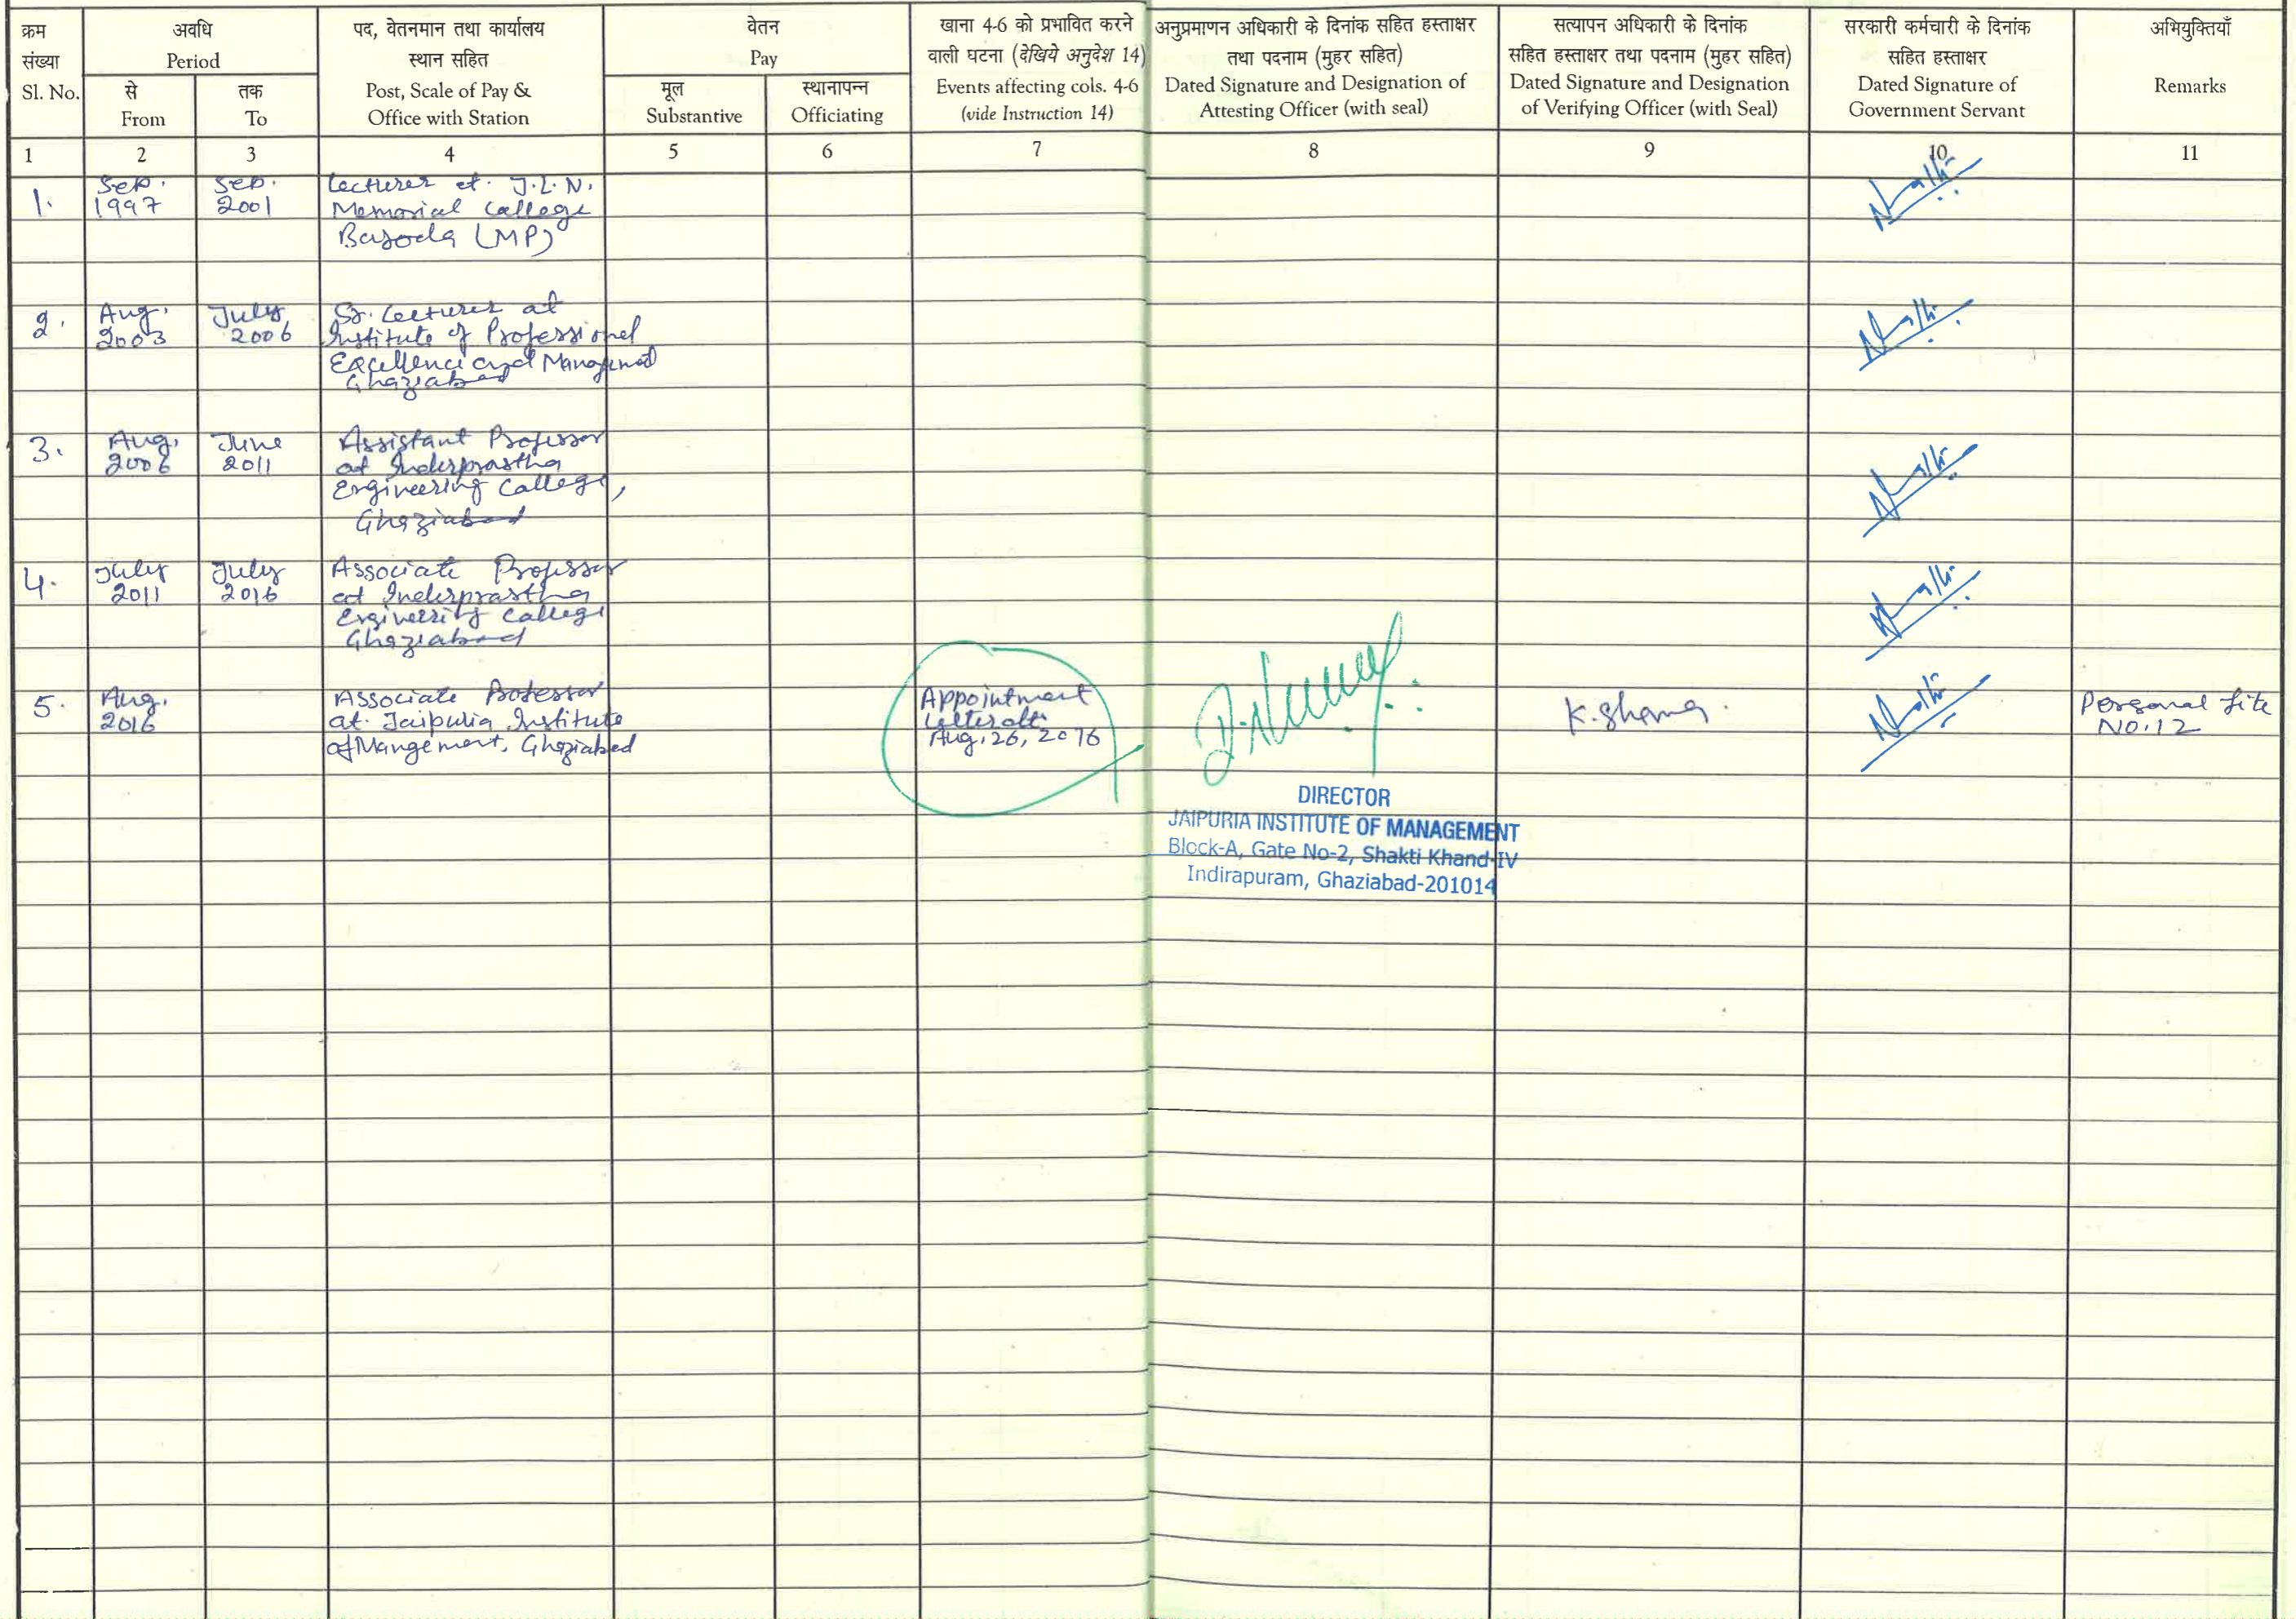 क्रम संख्या Sl. No.
अवधि Period
से From
तक To
पद, वेतनमान तथा कार्यालय
स्थान सहित
Post, Scale of Pay &
Office with Station
वेतन
Pay
मूल
Substantive
स्थानापन्न
Officiating
खाना 4-6 को प्रभावित करने
वाली घटना (देखिये अनुदेश 14)
Events affecting cols. 4-6
(vide Instruction 14)
अनुप्रमाणन अधिकारी के दिनांक सहित हस्ताक्षर
तथा पदनाम (मुहर सहित)
Dated Signature and Designation of
Attesting Officer (with seal)
सत्यापन अधिकारी के दिनांक
सहित हस्ताक्षर तथा पदनाम (मुहर सहित)
Dated Signature and Designation
of Verifying Officer (with Seal)
सरकारी कर्मचारी के दिनांक
सहित हस्ताक्षर
Dated Signature of
Government Servant
अभियुक्तियाँ
Remarks
1 2 3 4 5 6 7 8 9 10 11
1.
Sep.
1997
Sep.
2001
Lecturer at J.L.N.
Memorial College
(MP)
2.
Aug.
2003
July
2006
Sr. Lecturer at
Institute of Professional
Excellence and Management
Ghaziabad
3.
Aug.
2006
June
2011
Assistant Professor
at Inderprastha
Engineering College,
Ghaziabad
4.
July
2011
July
2016
Associate Professor
at Inderprastha
Engineering College
Ghaziabad
5.
Aug.
2016
Associate Professor
at Jaipuria Institute
of Mangement, Ghaziabad
Appointment
Letter dt.
Aug. 26, 2016
K. Sharma.
Personal file
No. 12
DIRECTOR
JAIPURIA INSTITUTE OF MANAGEMENT
Block-A, Gate No-2, Shakti Khand-IV
Indirapuram, Ghaziabad-201014